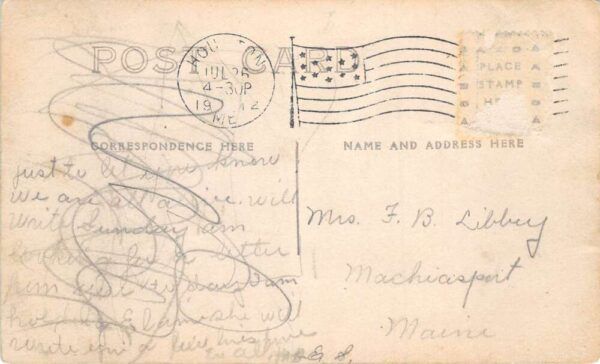 POST CARD
HOULTON
JUL 26
4-30P
1912
ME.
PLACE
STAMP
HERE
CORRESPONDENCE HERE
NAME AND ADDRESS HERE
Just to let you know
we are all alive. will
write Sunday am
looking for a letter
from you to day am
she will
write
Mrs. F. B. Libbey
Machiasport
Maine